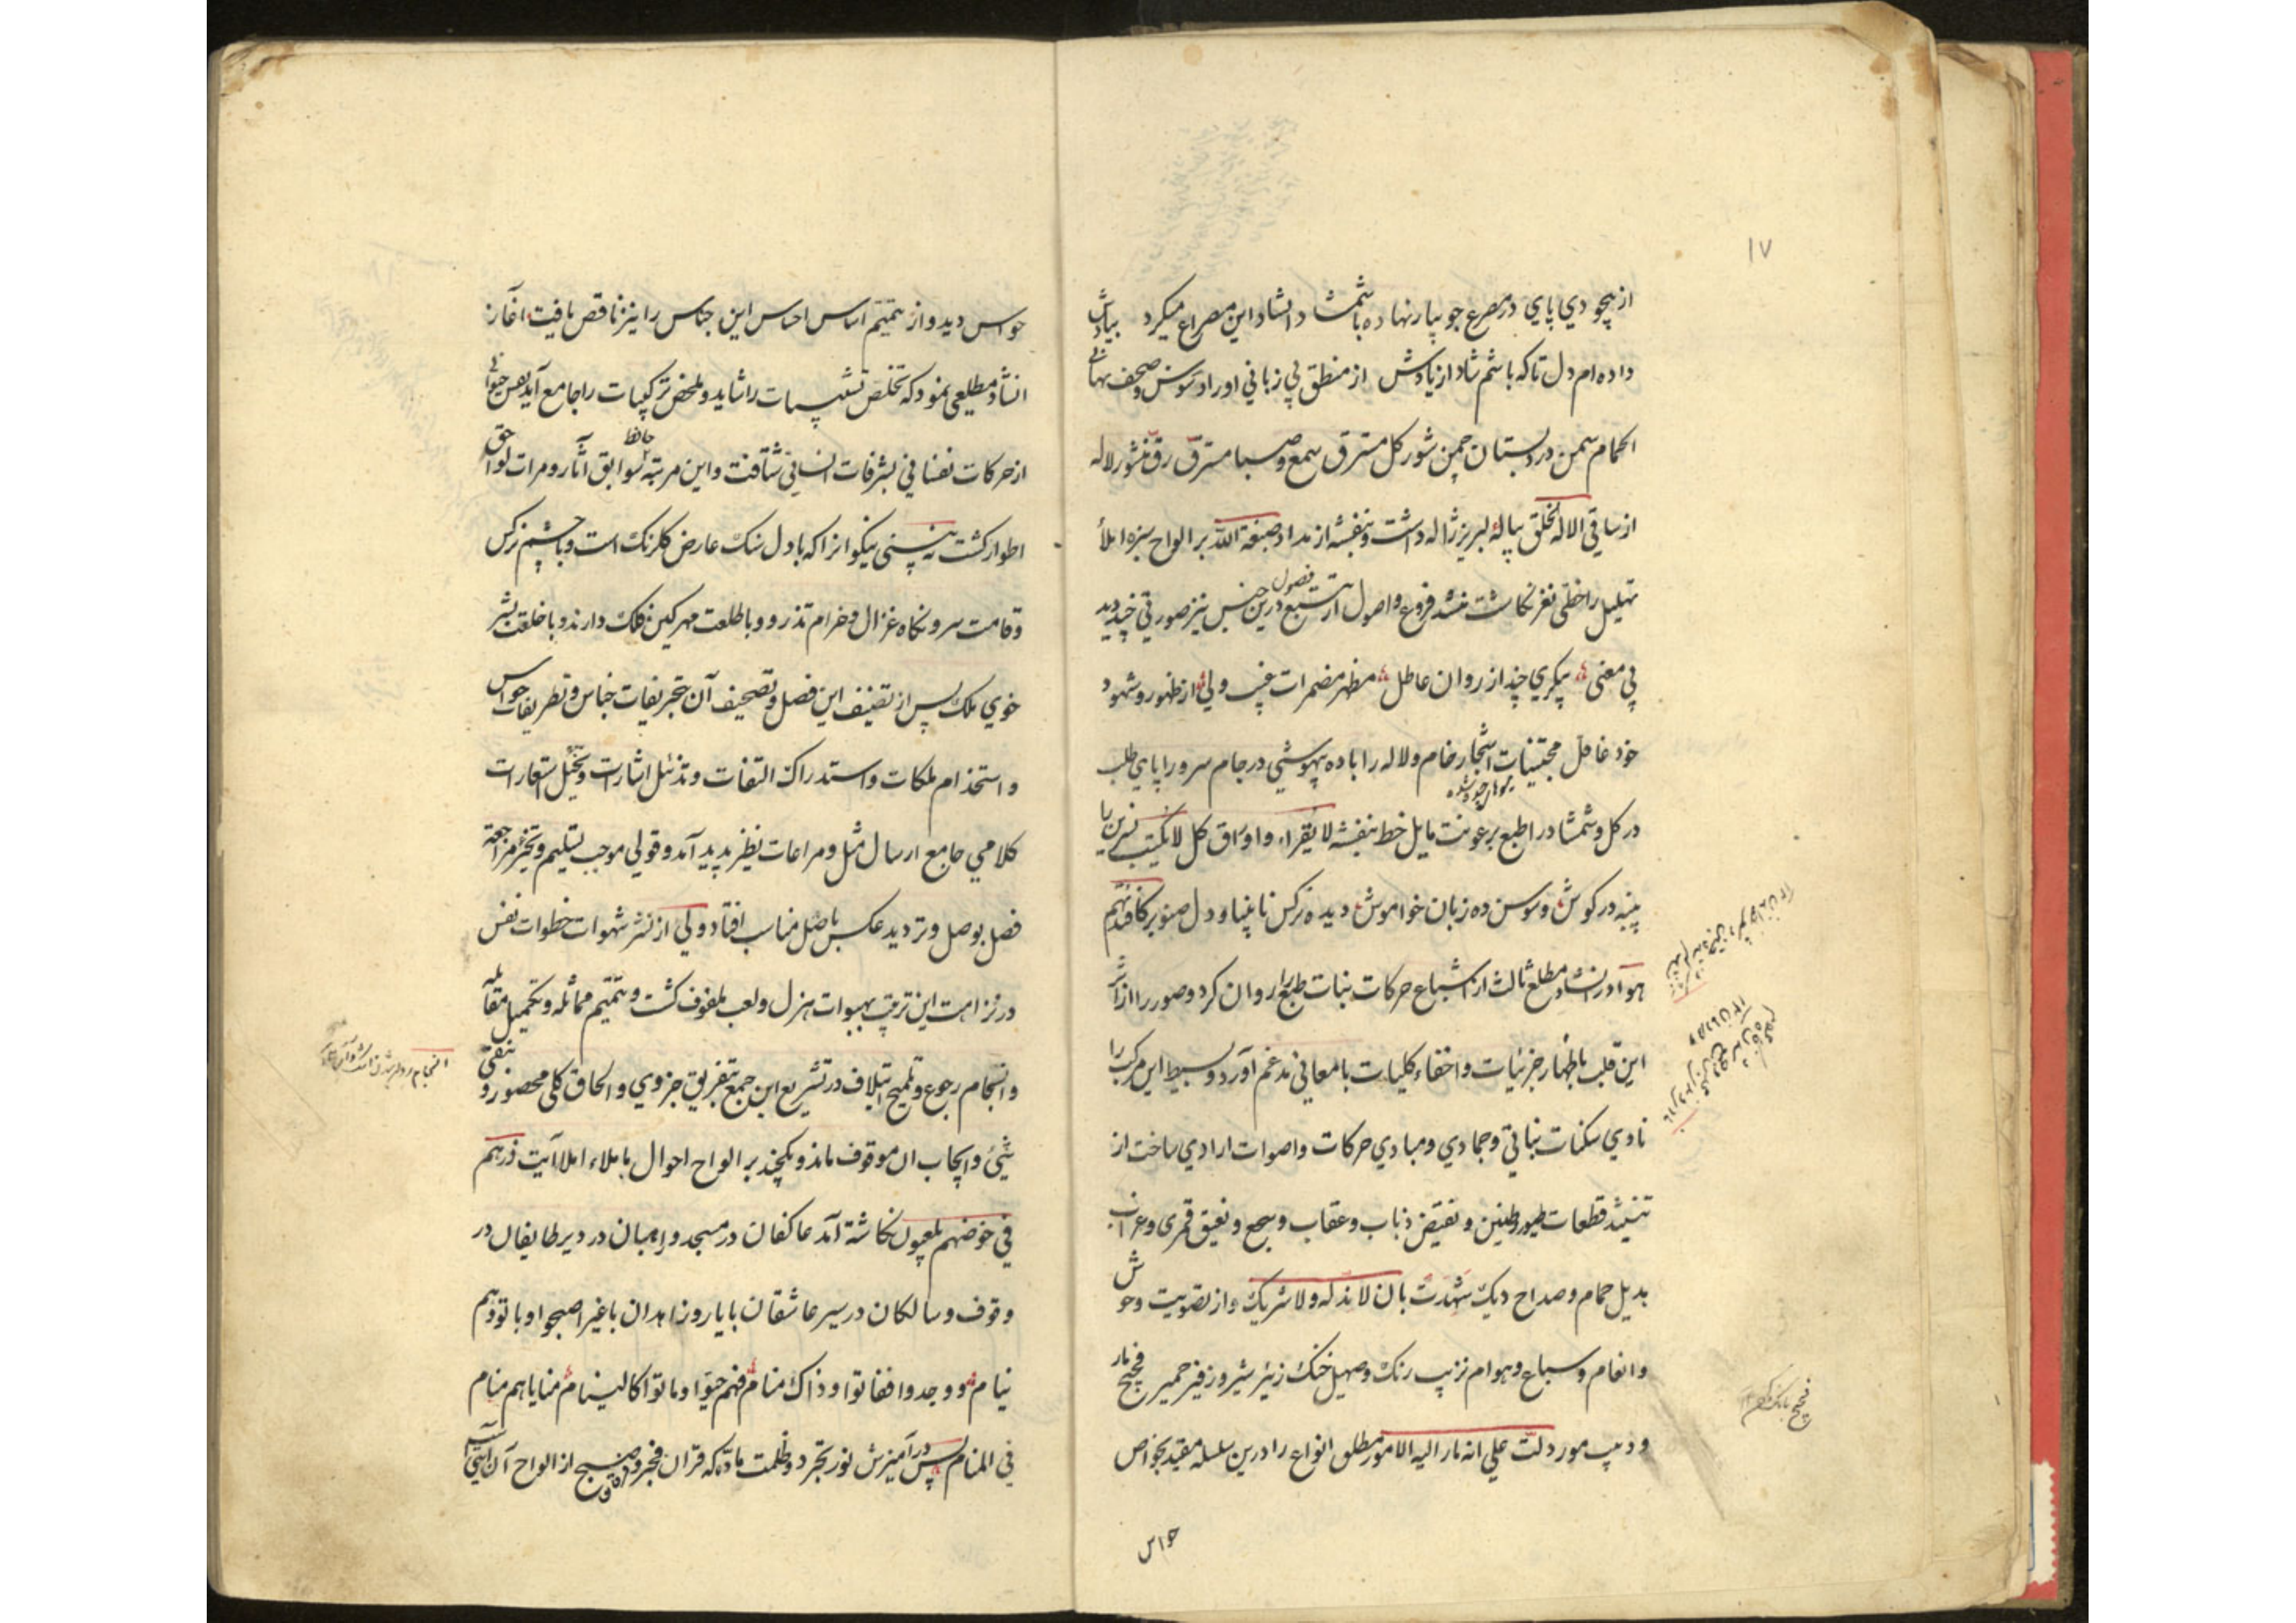 ۱۷
از بیخودی پای در مصرع جویبار نهاده با شمشاد انشاد این مصراع میکرد بیادش
داده ام دل تا که باشم شاد از یادش از منطق بی زبانی اوراد سوسن و صحف
الحمام سمن در دبستان چمن شور کل مسترق سمع و صبا مسترق رق منشور لاله
از ساقی الا له الخلق پیاله لبریز ژاله داشت و بنفشه از مداد صبغة الله بر الواح سبزه املأ
تهلیل را خطی نغز نکاشت فروع و اصول از تتبع فصول درین جنس نیز صورتی چند دید
بی معنی پیکری چند از روان عاطل مظهر مضمرات غیب ولی از ظهور و شهود
خود غافل مجتنیات اشجار خام و لاله را باده بیهوشی در جام سرو را پای طلب
در کل و شمشاد را طبع برعونت مایل خط بنفشه لا یقراء و اوراق کل لا یکتب نسرین با
پنبه در کوش و سوسن ده زبان خواموش دیده نرکس نابینا و دل صنوبر کافئدتهم
هوآء در انشاد مطلع ثالث از اشباع حرکات بنات طبع را روان کرد و صور را از اثر
این قلب باظهار جزئیات و اخفاء کلیات با معانی مدغم آورد و بسیط این مرکب را
نادی سکنات نباتی و جمادی و مبادی حرکات و اصوات ارادی ساخت از
قطعات طیور و طنین و نقیض ذباب و عقاب و سجع و نعیق قمری و غراب
بدیل حمام و صداح دیک شهدت بان لا ند له و لا شریک و از تصویت وحوش
و انعام و سباع و هوام نزیب رنک و صهیل خنک زئیر شیر و زفیر حمیر فحیح مار
و دبیب مور دلت علی انه مار الیه الامور مطلق انواع را درین سلسله مقید بخواص
فحیح بانک
حواس
حواس دید و از تتمیم اساس احساس این جناس را نیز ناقص یافت آغاز
انشاد مطلعی نمود که تخلص تشبیهات را شاید و ملخص ترکیبات را جامع آید نفس حیوانی
از حرکات نفسانی بشرفات انسانی شتافت و این مرتبه حافظ سوابق آثار و مرات لواحق
اطوار کشت بینی نیکوانرا که با دل سنک عارض کلرنک است و با چشم نرکس
و قامت سرو نکاه غزال و خرام تذرو و با طلعت مهر کین فلک دارند و با خلقت بشر
خوی ملک پس از تضیف این فصل و تصحیف آن بتحریفات جناس و تطریفات حواس
و استخدام ملکات و استدراک التفات و تذئیل اشارات و تخئیل استعارات
کلامی جامع ارسال مثل و مراعات نظیر پدید آمد و قولی موجب تسلیم و مراجعه
فصل بوصل و تردید عکس باصل مناسب افتاد ولی از نشر شهوات خطوات نفس
در نزاهت این ترتیب بهبوات هزل و لعب ملفوف کشت و تتمیم مماثله و تکمیل مقابله
و انسجام رجوع و تلمیح ایتلاف در تشریع این جمع بتفریق جزوی و الحاق کلی محصور و بنفی
شیئ و ایجاب ان موقوف ماند و یکچند بر الواح احوال باملاء املا آیت ذرهم
فی خوضهم یلعبون نکاشته آمد عاکفان در مسجد و راهبان در دیر طایفان در
وقوف و سالکان در سیر عاشقان با یار و زاهدان با غیر اصبحوا و باتوا و هم
نیام و وجدوا ففاتوا و ذاک منام فهم حیوا و ماتوا کالنیام منایاهم منام
فی المنام پس در آمیزش نور تجرد و ظلمت ماده که قران فجر و صبح از الواح آن